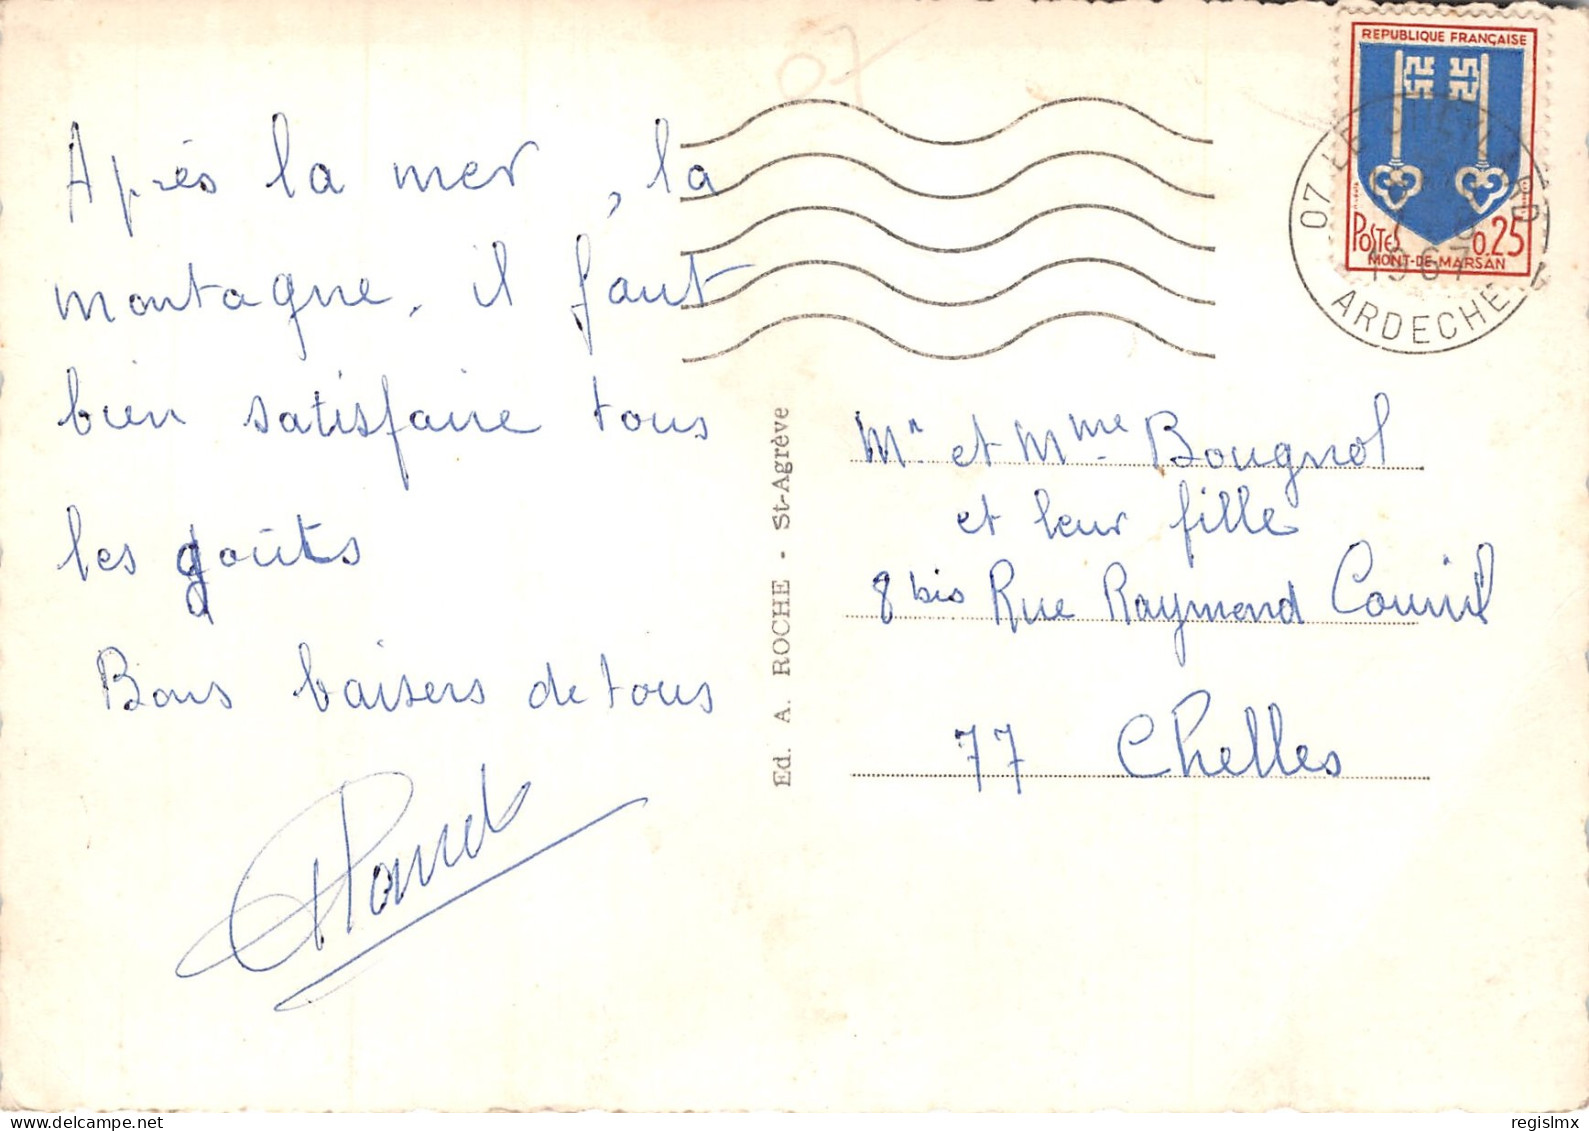 07
Après la mer, la
montagne. il faut
bien satisfaire tous
les goûts
Bons baisers de tous
Ed. A. ROCHE - St-Agrève
REPUBLIQUE FRANÇAISE
POSTES 0,25
MONT-DE-MARSAN
07 LE CHEYLARD
1967
ARDECHE
Mr et Mme Bougnol
et leur fille
8 bis Rue Raymond
77 Chelles
regislmx